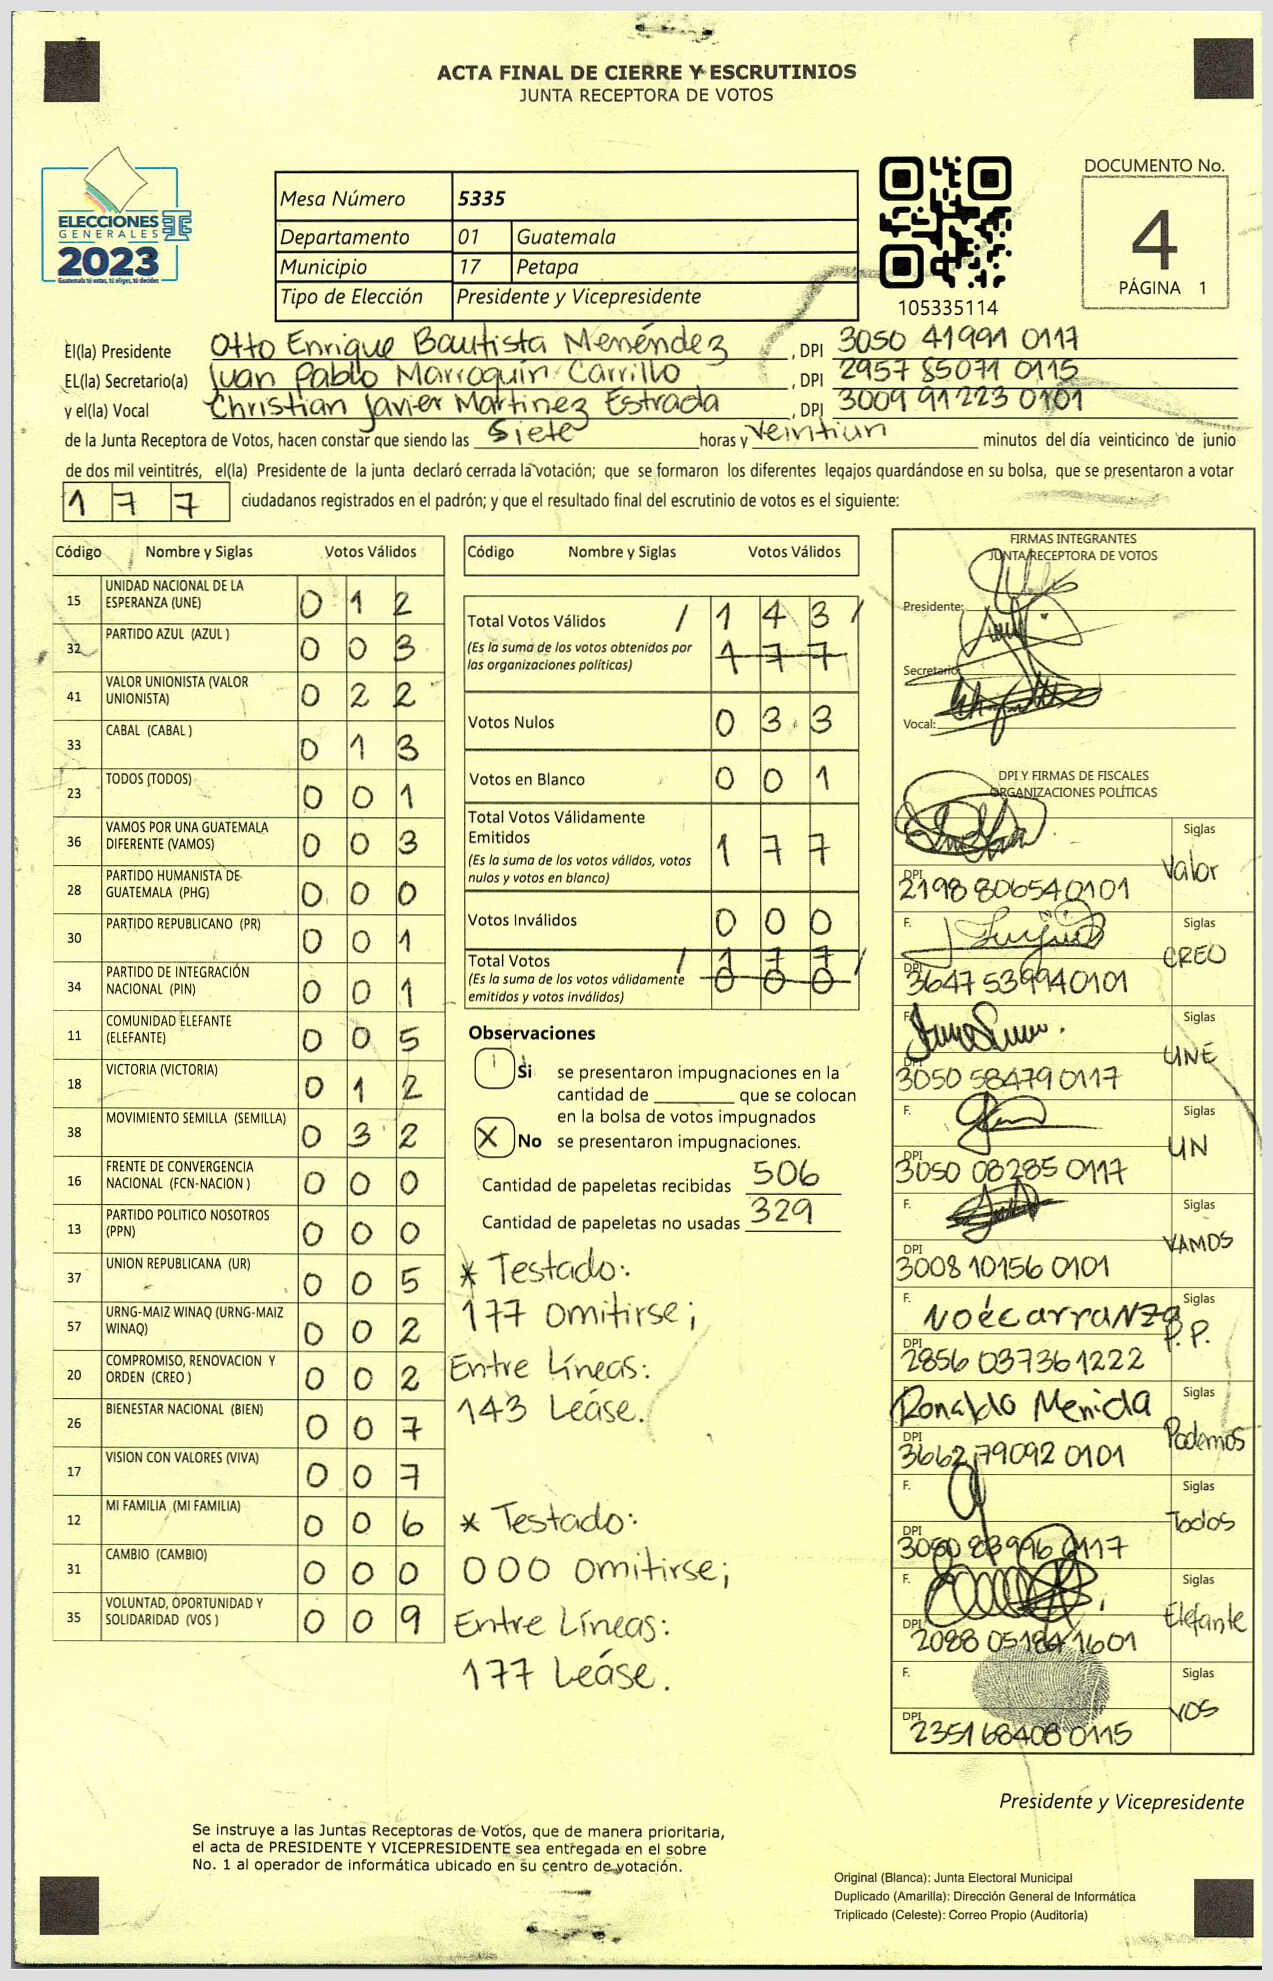 ACTA FINAL DE CIERRE Y ESCRUTINIOS
JUNTA RECEPTORA DE VOTOS
ELECCIONES
GENERALES
2023
Guatemala tú votas, tú eliges, tú decides
Mesa Número 5335
Departamento 01 Guatemala
Municipio 17 Petapa
Tipo de Elección Presidente y Vicepresidente
105335114
DOCUMENTO No.
4
PÁGINA 1
El(la) Presidente Otto Enrique Bautista Menéndez, DPI 3050 41991 0117
EL(la) Secretario(a) Juan Pablo Marroquín Carrillo, DPI 2957 85071 0115
y el(la) Vocal Christian Javier Martínez Estrada, DPI 3009 91223 0101
de la Junta Receptora de Votos, hacen constar que siendo las siete horas y veintiun minutos del día veinticinco de junio
de dos mil veintitrés, el(la) Presidente de la junta declaró cerrada la votación; que se formaron los diferentes legajos quardándose en su bolsa, que se presentaron a votar
177 ciudadanos registrados en el padrón; y que el resultado final del escrutinio de votos es el siguiente:
Código Nombre y Siglas Votos Válidos
15 UNIDAD NACIONAL DE LA ESPERANZA (UNE) 0 1 2
32 PARTIDO AZUL (AZUL ) 0 0 3
41 VALOR UNIONISTA (VALOR UNIONISTA) 0 2 2
33 CABAL (CABAL ) 0 1 3
23 TODOS (TODOS) 0 0 1
36 VAMOS POR UNA GUATEMALA DIFERENTE (VAMOS) 0 0 3
28 PARTIDO HUMANISTA DE GUATEMALA (PHG) 0 0 0
30 PARTIDO REPUBLICANO (PR) 0 0 1
34 PARTIDO DE INTEGRACIÓN NACIONAL (PIN) 0 0 1
11 COMUNIDAD ELEFANTE (ELEFANTE) 0 0 5
18 VICTORIA (VICTORIA) 0 1 2
38 MOVIMIENTO SEMILLA (SEMILLA) 0 3 2
16 FRENTE DE CONVERGENCIA NACIONAL (FCN-NACION ) 0 0 0
13 PARTIDO POLITICO NOSOTROS (PPN) 0 0 0
37 UNION REPUBLICANA (UR) 0 0 5
57 URNG-MAIZ WINAQ (URNG-MAIZ WINAQ) 0 0 2
20 COMPROMISO, RENOVACION Y ORDEN (CREO ) 0 0 2
26 BIENESTAR NACIONAL (BIEN) 0 0 7
17 VISION CON VALORES (VIVA) 0 0 7
12 MI FAMILIA (MI FAMILIA) 0 0 6
31 CAMBIO (CAMBIO) 0 0 0
35 VOLUNTAD, OPORTUNIDAD Y SOLIDARIDAD (VOS ) 0 0 9
Código Nombre y Siglas Votos Válidos
Total Votos Válidos / 1 4 3 /
(Es la suma de los votos obtenidos por las organizaciones políticas) 1 7 7
Votos Nulos 0 3 3
Votos en Blanco 0 0 1
Total Votos Válidamente Emitidos 1 7 7
(Es la suma de los votos válidos, votos nulos y votos en blanco)
Votos Inválidos 0 0 0
Total Votos / 1 7 7 /
(Es la suma de los votos válidamente emitidos y votos inválidos) 0 0 0
Observaciones
Si se presentaron impugnaciones en la
cantidad de ________ que se colocan
en la bolsa de votos impugnados
X No se presentaron impugnaciones.
Cantidad de papeletas recibidas 506
Cantidad de papeletas no usadas 329
* Testado:
177 omitirse;
Entre Líneas:
143 Leáse.
* Testado:
000 omitirse;
Entre Líneas:
177 Leáse.
FIRMAS INTEGRANTES
JUNTA RECEPTORA DE VOTOS
Presidente:
Secretario:
Vocal:
DPI Y FIRMAS DE FISCALES
ORGANIZACIONES POLÍTICAS
Siglas
Valor
DPI
2198 80654 0101
F. Siglas
CREO
DPI
3647 53994 0101
F. Siglas
UNE
3050 58479 0117
F. Siglas
UN
DPI
3050 08285 0117
F. Siglas
VAMOS
DPI
3008 10156 0101
F. Noé carranza Siglas
P.P.
DPI
2856 03736 1222
Ronaldo Merida Siglas
Podemos
DPI
3662 79092 0101
F. Siglas
Todos
DPI
3050 83996 0117
F. Siglas
Elefante
DPI
2088 05184 1601
F. Siglas
VOS
DPI
2351 68408 0115
Presidente y Vicepresidente
Se instruye a las Juntas Receptoras de Votos, que de manera prioritaria,
el acta de PRESIDENTE Y VICEPRESIDENTE sea entregada en el sobre
No. 1 al operador de informática ubicado en su centro de votación.
Original (Blanca): Junta Electoral Municipal
Duplicado (Amarilla): Dirección General de Informática
Triplicado (Celeste): Correo Propio (Auditoría)